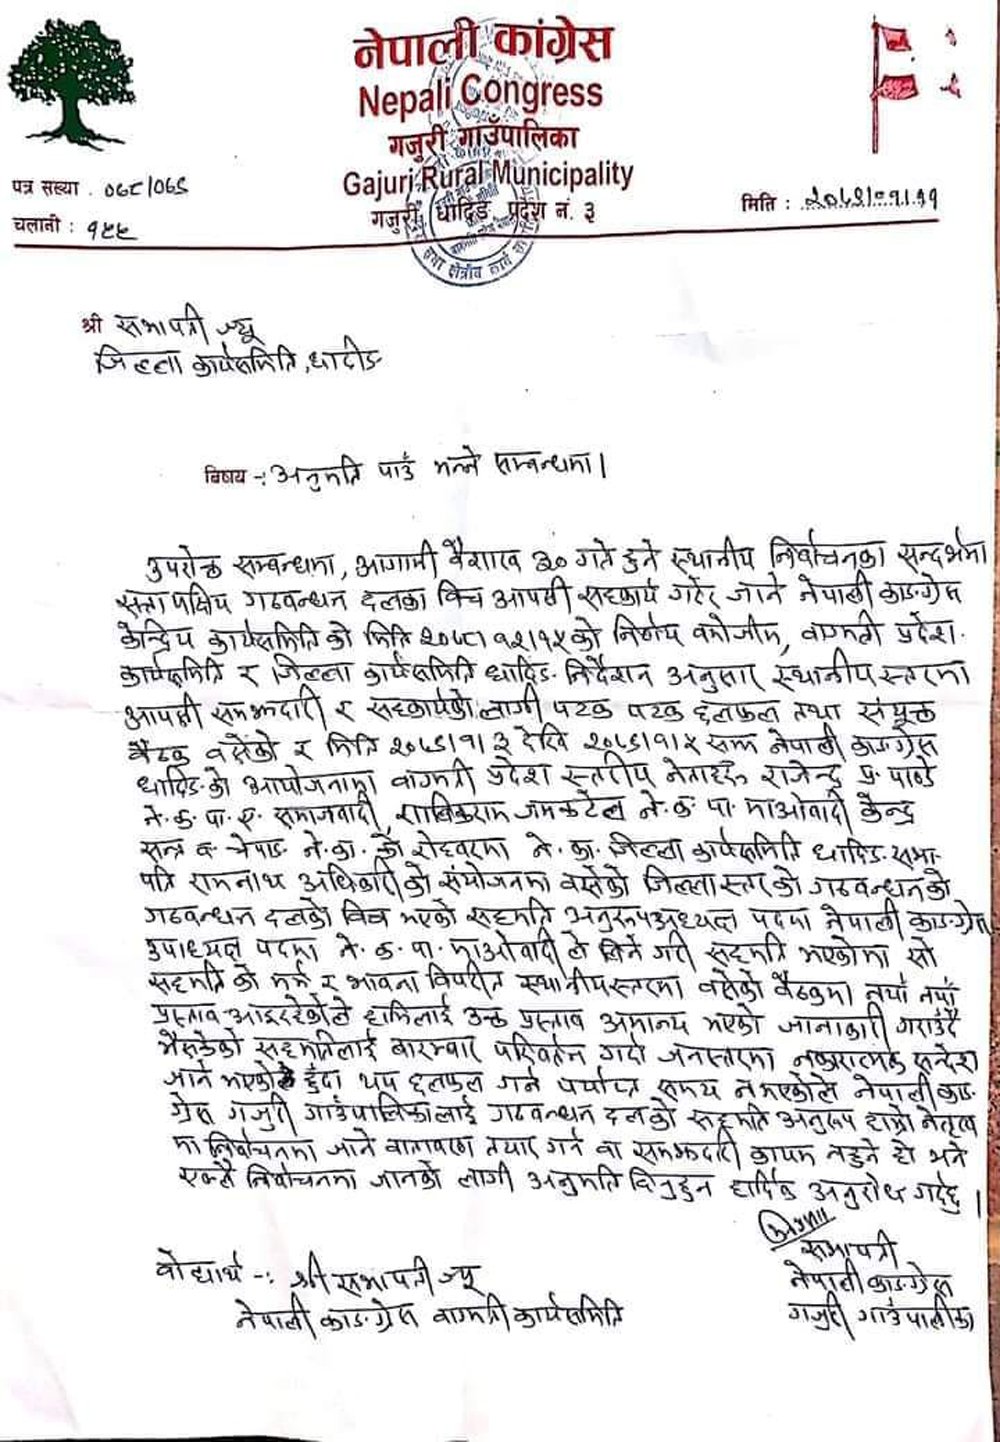 नेपाली कांग्रेस
Nepali Congress
गजुरी गाउँपालिका
Gajuri Rural Municipality
गजुरी, धादिङ प्रदेश नं. ३
पत्र सख्या . ०७८/०७९
चलानी : १९९
मिति : २०७९/०१/११
श्री सभापती ज्यू
जिल्ला कार्यसमिति, धादीङ
विषय -: अनुमति पाउँ भन्ने सम्बन्धमा।
उपरोक्त सम्बन्धमा, आगामी वैशाख ३० गते हुने स्थानीय निर्वाचनका सन्दर्भमा
सत्ता पक्षिय गठवन्धन दलका विच आपसी सहकार्य गरेर जाने नेपाली काङग्रेस
केन्द्रिय कार्यसमिति को मिति २०७८।१२।१५ को निर्णय वमोजीम, वाग्मती प्रदेश
कार्यसमिति र जिल्ला कार्यसमिति धादिङ निर्देशन अनुसार स्थानीय स्तरमा
आपसी समझदारी र सहकार्यको लागी पटक पटक छलफल तथा संयुक्त
बैठक वसेको र मिति २०७९।१।३ देखि २०७९।१।५ सम्म नेपाली काङग्रेस
धादिङ को आयोजनामा वाग्मती प्रदेश स्तरीय नेताहरु राजेन्द्र प्र. पाण्डे
ने. क. पा. ए. समाजवादी, शालिकराम जमकटेल ने. क. पा. माओवादी केन्द्र
ने. का. को रोहवरमा ने. का. जिल्ला कार्यसमिति धादिङ सभा-
पति रामनाथ अधिकारी को संयोजनमा वसेको जिल्ला स्तर को गठवन्धनको
गठवन्धन दलको विच भएको सहमति अनुरुप अध्यक्ष पदमा नेपाली काङग्रेस
उपाध्यक्ष पदमा ने. क. पा. माओवादी ले लिने गरी सहमति भएकोमा सो
सहमति को मर्म र भावना विपरीत स्थानीयस्तरमा वसेको बैठकमा नयाँ नयाँ
प्रस्ताव आइरहेकोले हामिलाई उक्त प्रस्ताव अमान्य भएको जानाकारी गराउँदै
भैसकेको सहमतिलाई बारम्वार परिवर्तन गर्दा जनस्तरमा नकारात्मक सन्देश
जाने भएकोले हुँदा थप छलफल गर्न पर्याप्त समय नभएकोले नेपाली काङ-
ग्रेस गजुरी गाउँपालिकालाई गठवन्धन दलको सहमति अनुरुप हाम्रो नेतृत्व
मा निर्वाचनमा जाने वातावरण तयार गर्न वा समझदारी कायम नहुने हो भने
एक्लै निर्वाचनमा जानको लागी अनुमति दिनुहुन हार्दिक अनुरोध गर्दछु।
सभापती
नेपाली काङग्रेस
गजुरी गाउँपालिका
वोद्यार्थ -: श्री सभापती ज्यू
नेपाली काङग्रेस वाग्मती कार्यसमिति